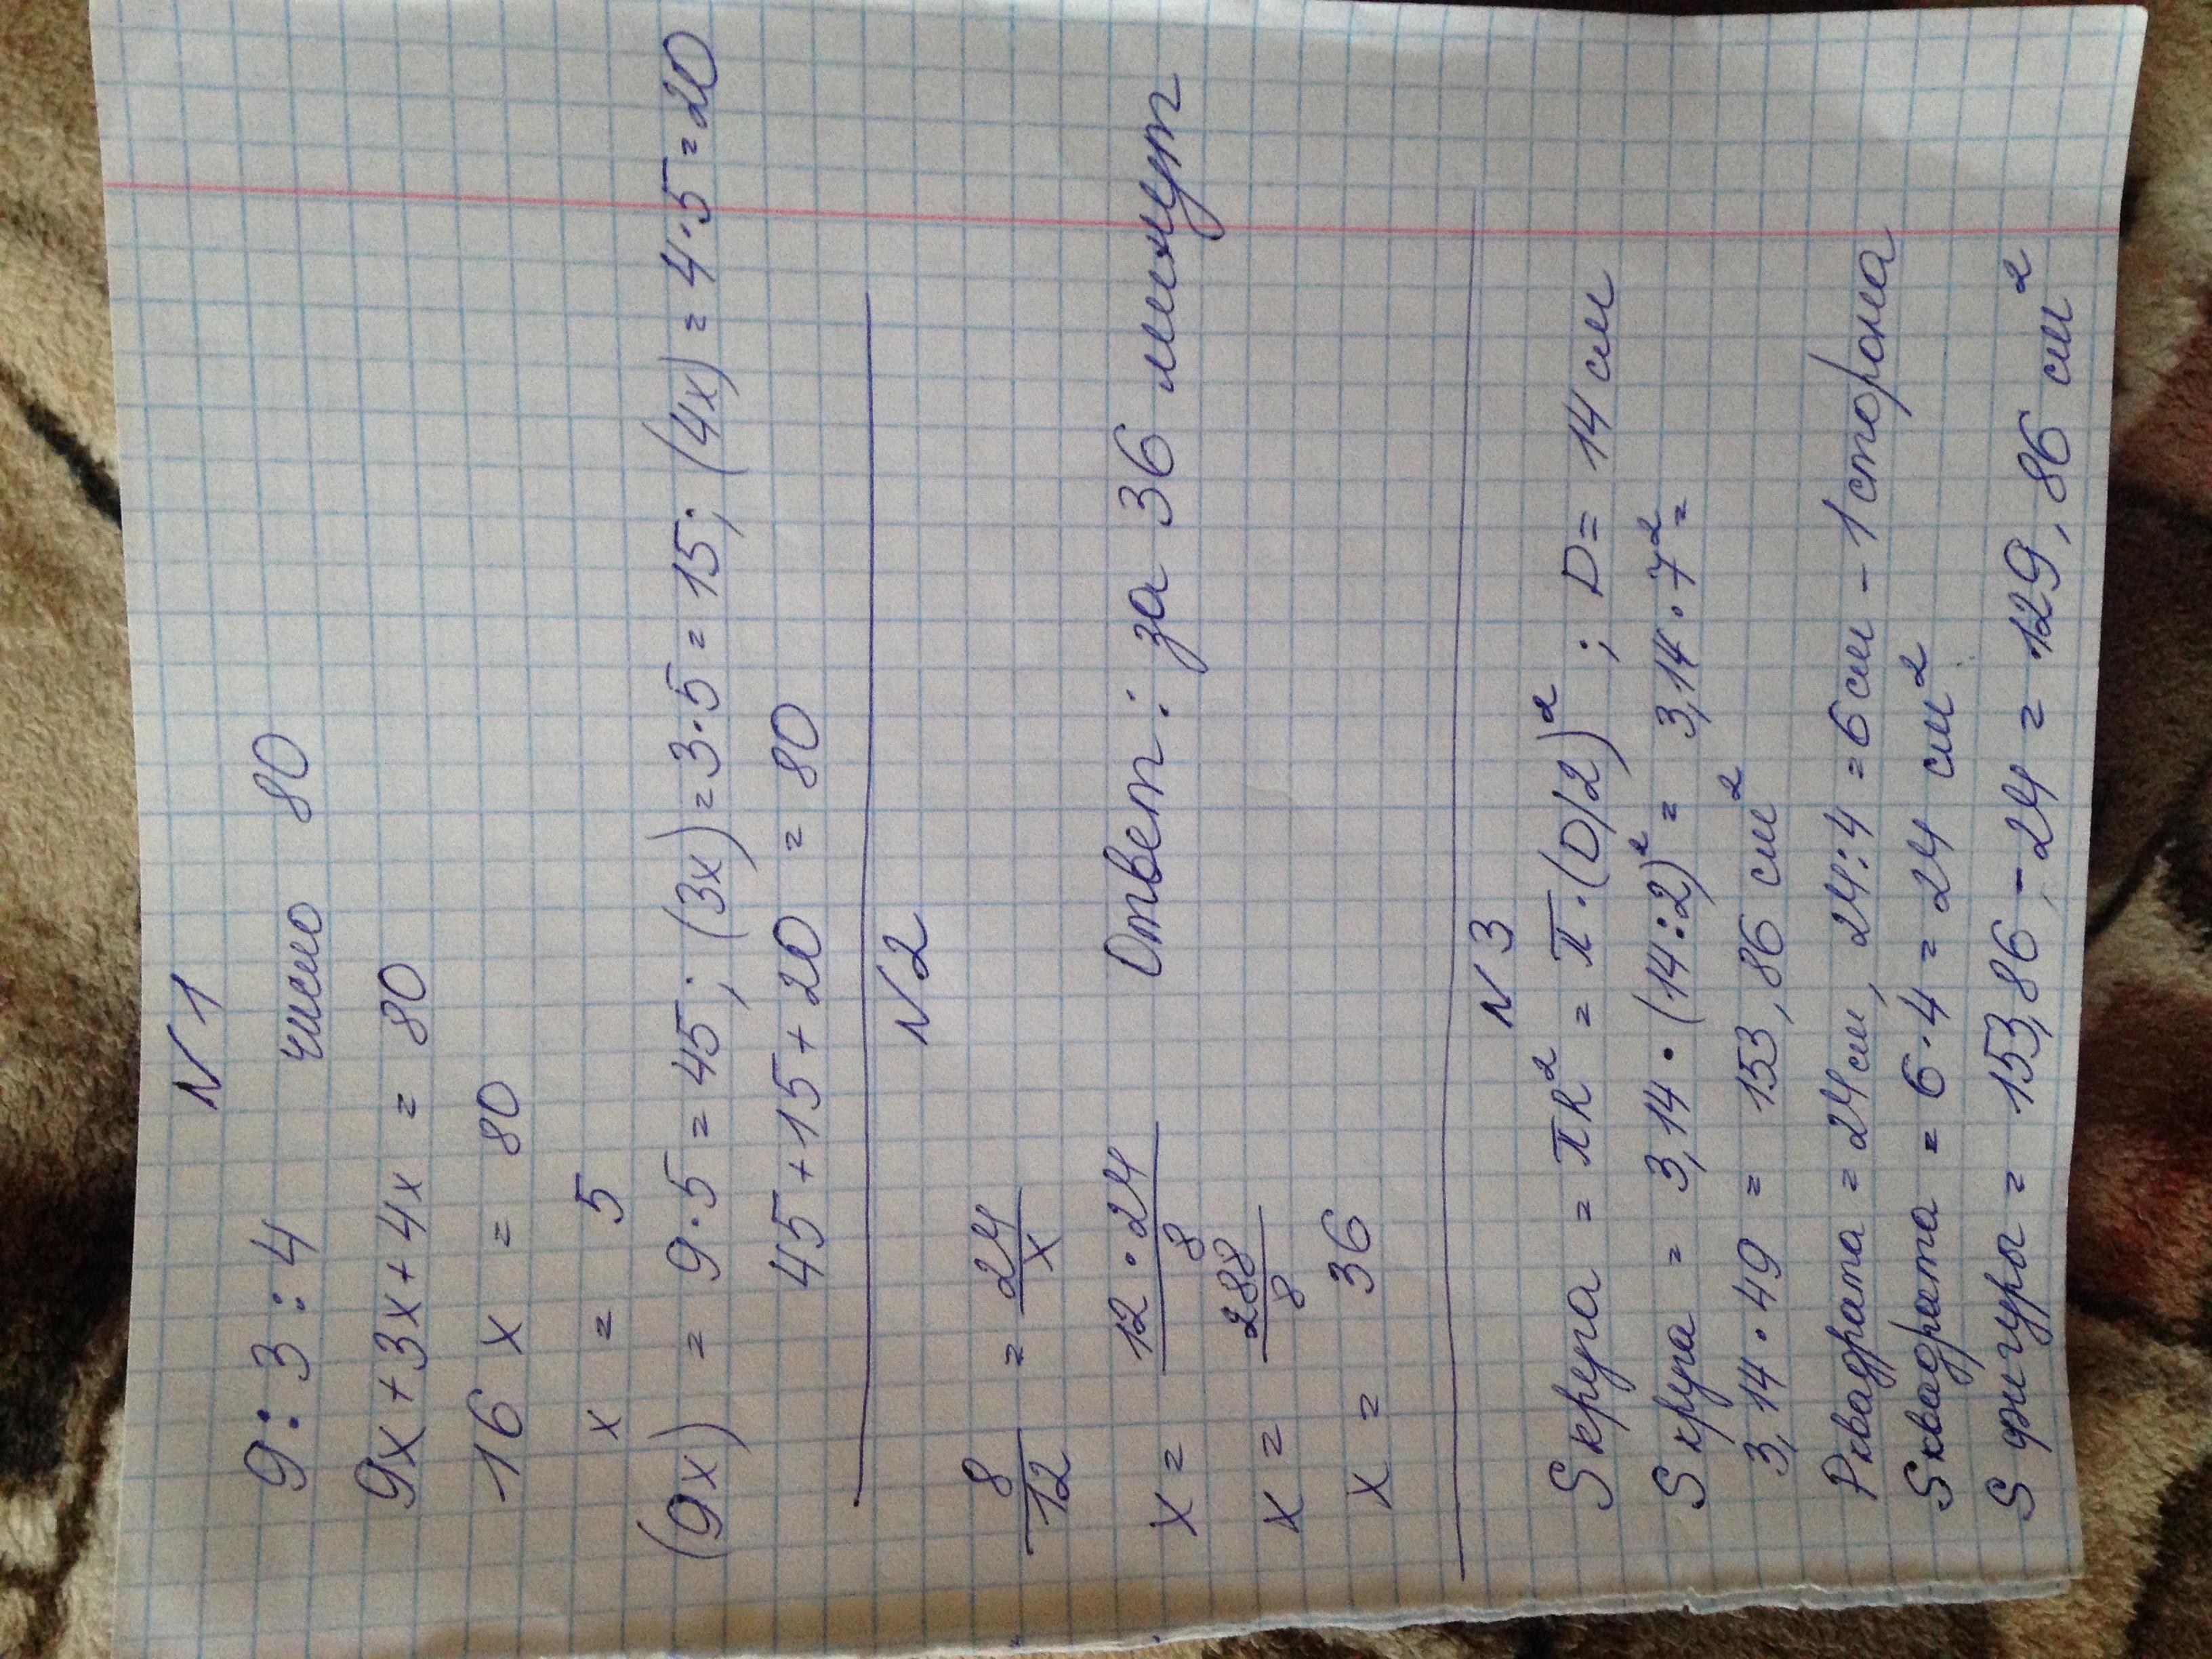 N 1
9 : 3 : 4 число 80
9x + 3x + 4x = 80
16 x = 80
x = 5
(9x) = 9·5 = 45; (3x) = 3·5 = 15; (4x) = 4·5 = 20
45 + 15 + 20 = 80
N 2
8/12 = 24/x
x = 12·24/8 Ответ: за 36 минут
x = 288/8
x = 36
N 3
S круга = πR² = π·(D/2)² ; D = 14 см
S круга = 3,14·(14:2)² = 3,14·7² =
3,14·49 = 153,86 см²
Pквадрата = 24см, 24:4 = 6см - 1 сторона
Sквадрата = 6·4 = 24 см²
S фигуры = 153,86 - 24 = 129,86 см²